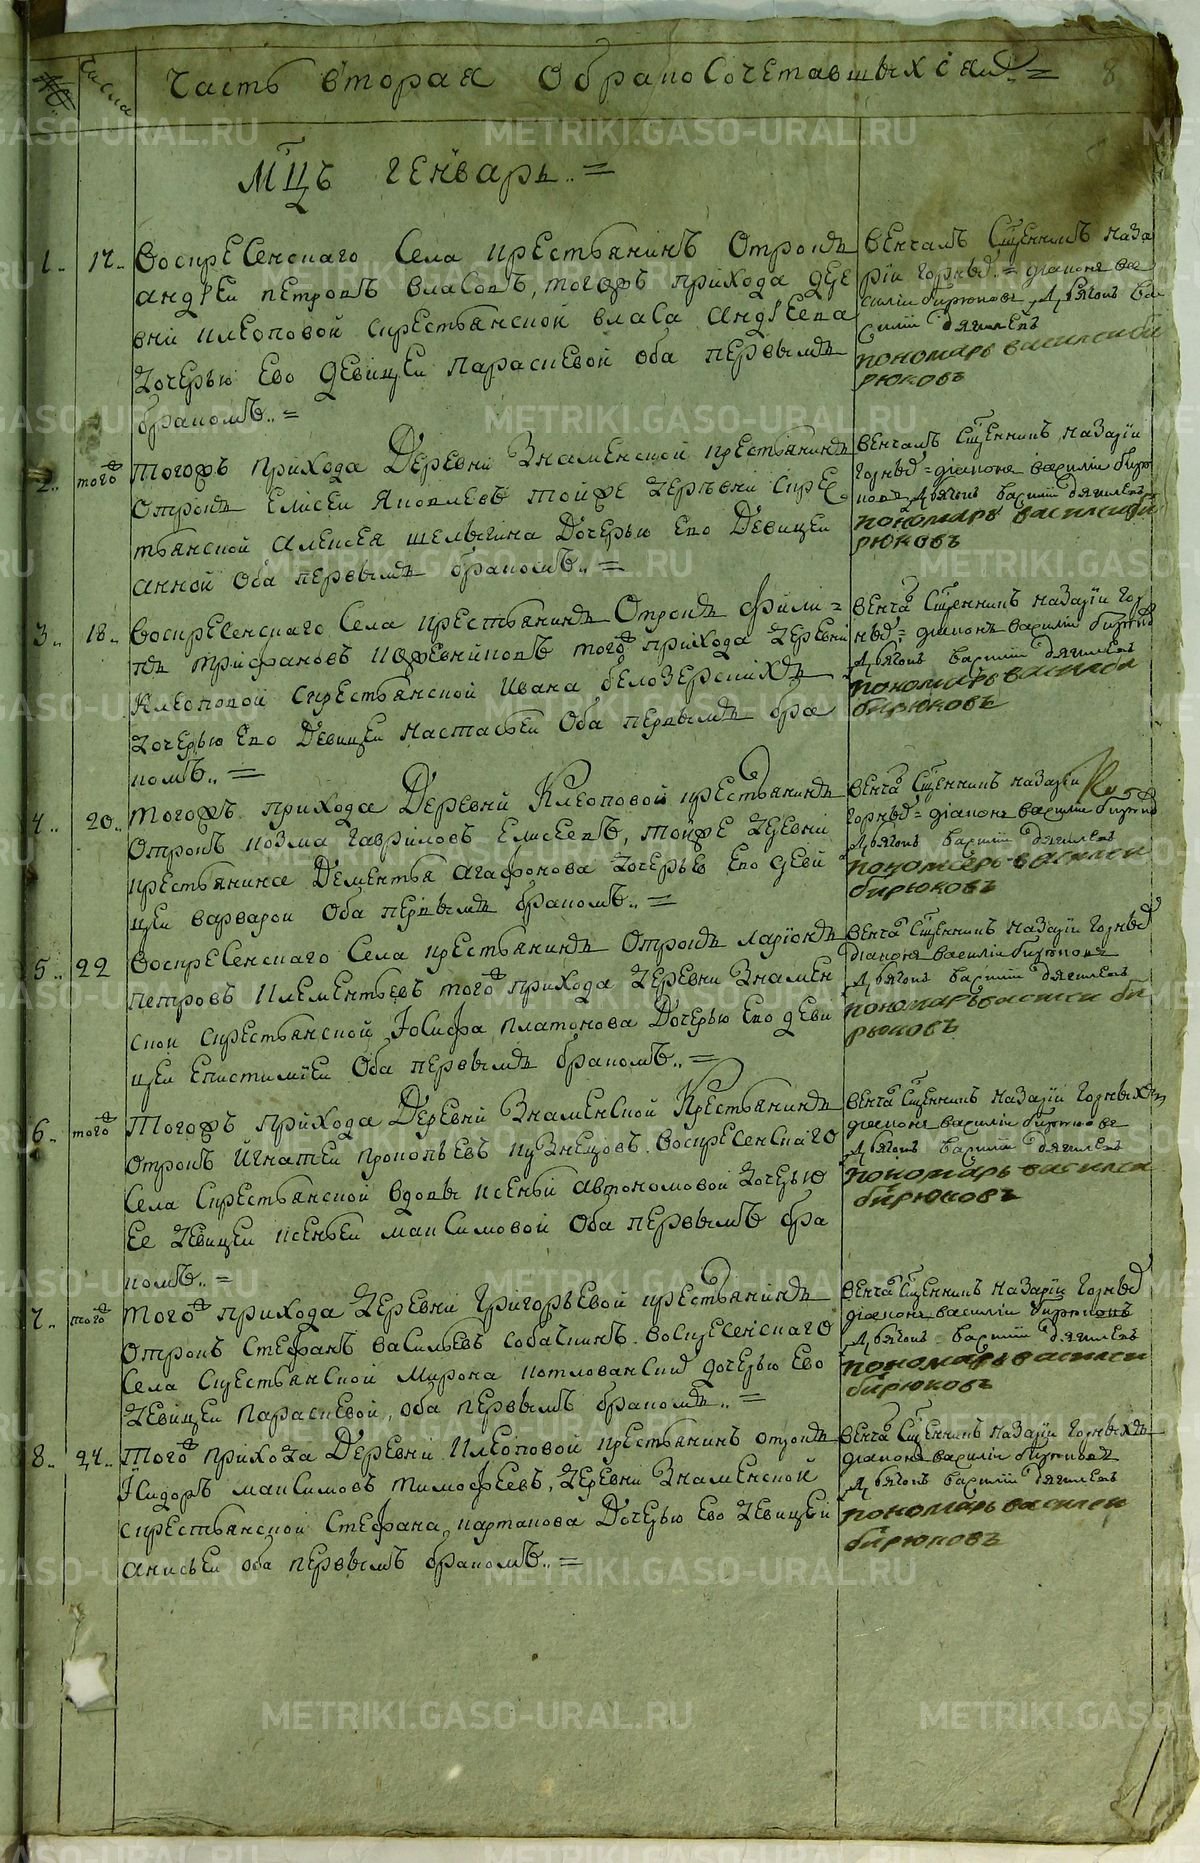 № числа Часть вторая обракосочетавшыхся 8
МЦЪ генварь
1 17 Воспресенскаго Села крестьянинъ Отрокъ
андрей петровъ власовъ, тогожъ прихода дере
вни клеоповой скрестьянской власа андреева
дочерью ево девицей параскевой оба первымъ
бракомъ
венчалъ Сщенникъ наза
рiи горныхъ диаконъ ва
силiи бирюковъ дьячокъ ва
силiи дягилевъ
пономарь василей би
рюковъ
2 того тогожъ прихода Деревни Знаменской крестьянинъ
отрокъ елисеи яковлевъ тойже деревни скрес
тьянской алексея шелыгина дочерью ево девицей
анной оба первымъ бракомъ
венчалъ Сщенникъ назарiи
горныхъ диаконъ василiи бирю
ковъ дьячокъ василiи дягилевъ
пономарь василей би
рюковъ
3 18 воскресенскаго Села крестьянинъ Отрокъ фили
пъ трифановъ кожевниковъ того прихода деревни
Клеоповой скрестьянской ивана белозерскихъ
дочерью ево девицей настасьей Оба первымъ бра
комъ
венча Сщенникъ назарiи гор
ныхъ диаконъ василiи бирюковъ
дьячокъ василiи дягилевъ
пономарь василей
бирюковъ
4 20 тогожъ прихода Деревни Клеоповой крестьянинъ
отрокъ козма гавриловъ елисеевъ, тойже деревни
крестьянина Дементья агафонова дочерью ево деви
цей варварой Оба первымъ бракомъ
венча Сщенникъ назарiи
горныхъ диаконъ василiи бирюковъ
дьячокъ василiи дягилевъ
пономарь василеи
бирюковъ
5 22 воскресенскаго Села крестьянинъ Отрокъ ларiонъ
петровъ клементьевъ того прихода деревни Знамен
скои скрестьянской Iосифа платонова Дочерью ево деви
цеи епистимiеи Оба первымъ бракомъ
венча Сщенникъ назарiи горныхъ
диаконъ василiи бирюковъ
дьячокъ василiи дягилевъ
пономарь василеи би
рюковъ
6 того тогожъ прихода Деревни Знаменской Крестьянинъ
отрокъ игнатеи прокопьевъ кузнецовъ воскресенскаго
Села скрестьянской вдовы ксеньи автономовой дочерью
ее девицеи ксеньеи максимовой Оба первымъ бра
комъ
венча Сщенникъ назарiи горныхъ
диаконъ василiи бирюковъ
дьячокъ василiи дягилевъ
пономарь василеи
бирюковъ
7 того того прихода деревни григорьевой крестьянинъ
отрокъ стефанъ васильевъ собачкинъ воскресенскаго
Села скрестьянской мирона котлованскихъ дочерью ево
девицеи параскевой, оба первымъ бракомъ
венча Сщенникъ назарiи горныхъ
диаконъ василiи бирюковъ
дьячокъ василiи дягилевъ
пономарь василеи
бирюковъ
8 24 того прихода Деревни Клеоповой крестьянинъ отрокъ
Исидоръ максимовъ тимофеевъ, деревни Знаменской
скрестьянской Стефана картапова Дочерью ево девицей
анисьеи оба первымъ бракомъ
венча Сщенникъ назарiи горныхъ
диаконъ василiи бирюковъ
дьячокъ василiи дягилевъ
пономарь василеи
бирюковъ
METRIKI.GASO-URAL.RU